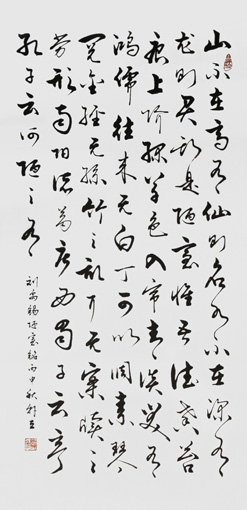 山不在高有仙则名水不在深有
龙则灵斯是陋室惟吾德馨苔
痕上阶绿草色入帘青谈笑有
鸿儒往来无白丁可以调素琴
阅金经无丝竹之乱耳无案牍之
劳形南阳诸葛庐西蜀子云亭
孔子云何陋之有
刘禹锡陋室铭丙申秋